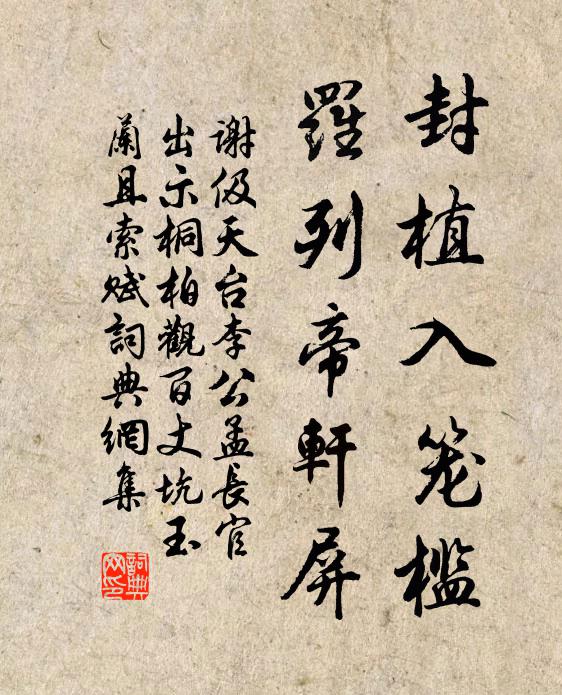 封植入笼槛
羅列帝軒屏
謝伋天台李公孟長官
出示桐柏觀百丈坑玉
蘭且索赋詞典網集
詞典
网印